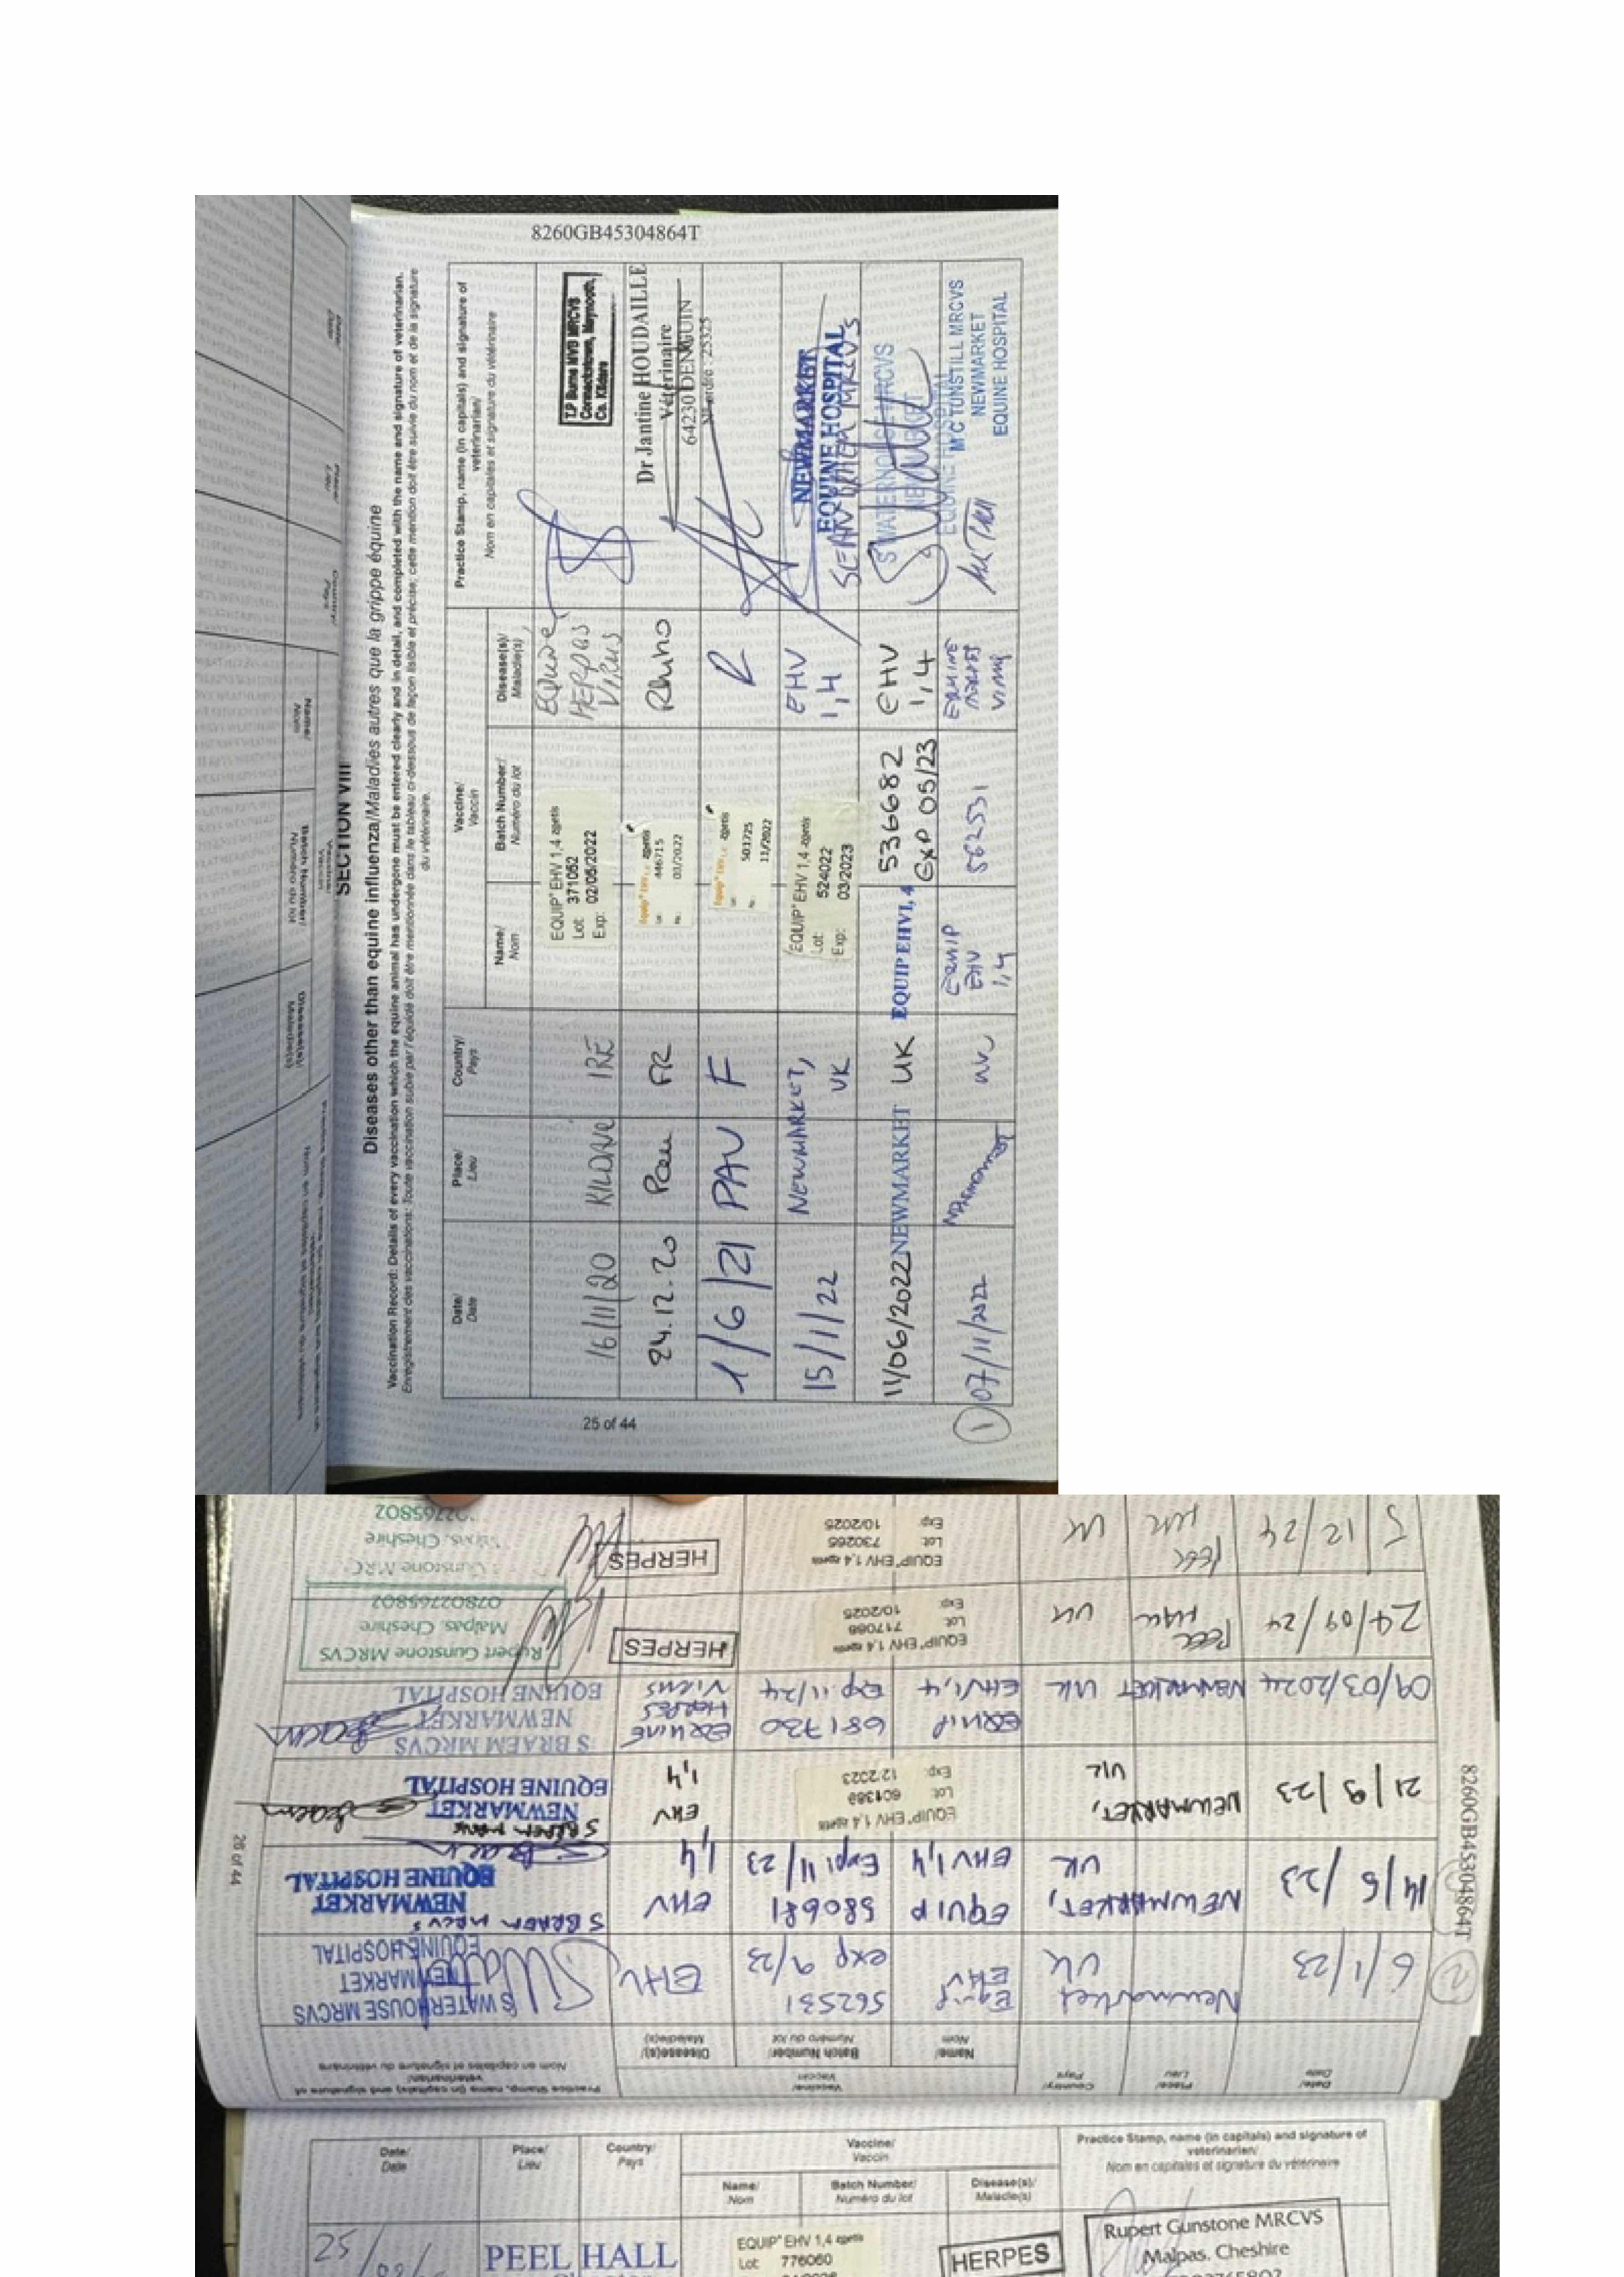 8260GB45304864T
SECTION VIII
Diseases other than equine influenza/Maladies autres que la grippe équine
Vaccination Record: Details of every vaccination which the equine animal has undergone must be entered clearly and in detail, and completed with the name and signature of veterinarian.
Enregistrement des vaccinations: Toute vaccination subie par l'équidé doit être mentionnée dans le tableau ci-dessous de façon lisible et précise; cette mention doit être suivie du nom et de la signature
du vétérinaire.
Date/ Place/ Country/ Vaccine/ Practice Stamp, name (in capitals) and signature of
Date Lieu Pays Vaccin veterinarian/
Nom en capitales et signature du vétérinaire
Name/ Batch Number/ Disease(s)/
Nom Numéro du lot Maladie(s)
16/11/20 KILDARE IRE
EQUIP EHV 1,4 zoetis
Lot: 371052
Exp: 02/05/2022
EQUINE
HERPES
VIRUS
T.P Burne MVB MRCVS
Connackstown, Maynooth,
Co. Kildare
24.12.20 Pau FR
Equip EHV 1,4 zoetis
Lot 446715
03/2022
Rhino
Dr Jantine HOUDAILLE
Vétérinaire
64230 DENGUIN
N° ordre 25325
1/6/21 PAU F
zoetis
501725
11/2022
R
15/1/22 NEWMARKET,
UK
EQUIP EHV 1,4 zoetis
Lot: 524022
Exp: 03/2023
EHV
1,4
NEWMARKET
EQUINE HOSPITAL
SEAN BRAEM MRCVS
11/06/2022 NEWMARKET UK EQUIP EHV1,4 536682 EHV
Exp 05/23 1,4
S WATERHOUSE MRCVS
NEWMARKET
EQUINE HOSPITAL
1 07/11/2022 Newmarket UK
EQUIP
EHV
1,4
562531
EQUINE
HERPES
VIRUS
M C TUNSTILL MRCVS
NEWMARKET
EQUINE HOSPITAL
25 of 44
8260GB45304864T
2
Date/ Place/ Country/ Vaccine/ Practice Stamp, name (in capitals) and signature of
Date Lieu Pays Vaccin veterinarian/
Nom en capitales et signature du vétérinaire
Name/ Batch Number/ Disease(s)/
Nom Numéro du lot Maladie(s)
6/1/23 Newmarket UK
Equip
EHV
562531
exp 9/23
EHV
S WATERHOUSE MRCVS
NEWMARKET
EQUINE HOSPITAL
14/5/23 NEWMARKET,
UK
EQUIP
EHV1,4
580681
Exp: 11/23
EHV
1,4
S BRAEM MRCVS
NEWMARKET
EQUINE HOSPITAL
21/9/23 NEWMARKET,
UK
EQUIP EHV 1,4 zoetis
Lot: 601389
Exp: 12/2023
EHV
1,4
S BRAEM MRCVS
NEWMARKET
EQUINE HOSPITAL
09/03/2024 NEWMARKET UK
EQUIP
EHV1,4
681730
Exp 11/24
EQUINE
HERPES
VIRUS
S BRAEM MRCVS
NEWMARKET
EQUINE HOSPITAL
24/09/24 PEEL
HALL
UK
EQUIP EHV 1,4 zoetis
Lot: 717066
Exp: 10/2025
HERPES
Rupert Gunstone MRCVS
Malpas. Cheshire
07802765802
5/12/24 PEEL
HALL
UK
EQUIP EHV 1,4 zoetis
Lot: 730265
Exp: 10/2025
HERPES
Gunstone MRC
Malpas. Cheshire
02765802
26 of 44
Date/ Place/ Country/ Vaccine/ Practice Stamp, name (in capitals) and signature of
Date Lieu Pays Vaccin veterinarian/
Nom en capitales et signature du vétérinaire
Name/ Batch Number/ Disease(s)/
Nom Numéro du lot Maladie(s)
PEEL HALL
EQUIP EHV 1,4 zoetis
Lot: 776060
HERPES
Rupert Gunstone MRCVS
Malpas. Cheshire